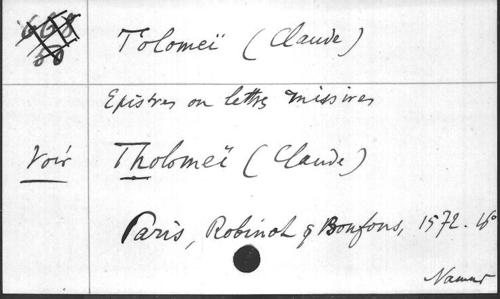 Tolomeï (Claude)
Epistres ou lettres missives
Voir Tholomeï (Claude)
Paris, Robinot & Bonfons, 1572. 16°
Namur